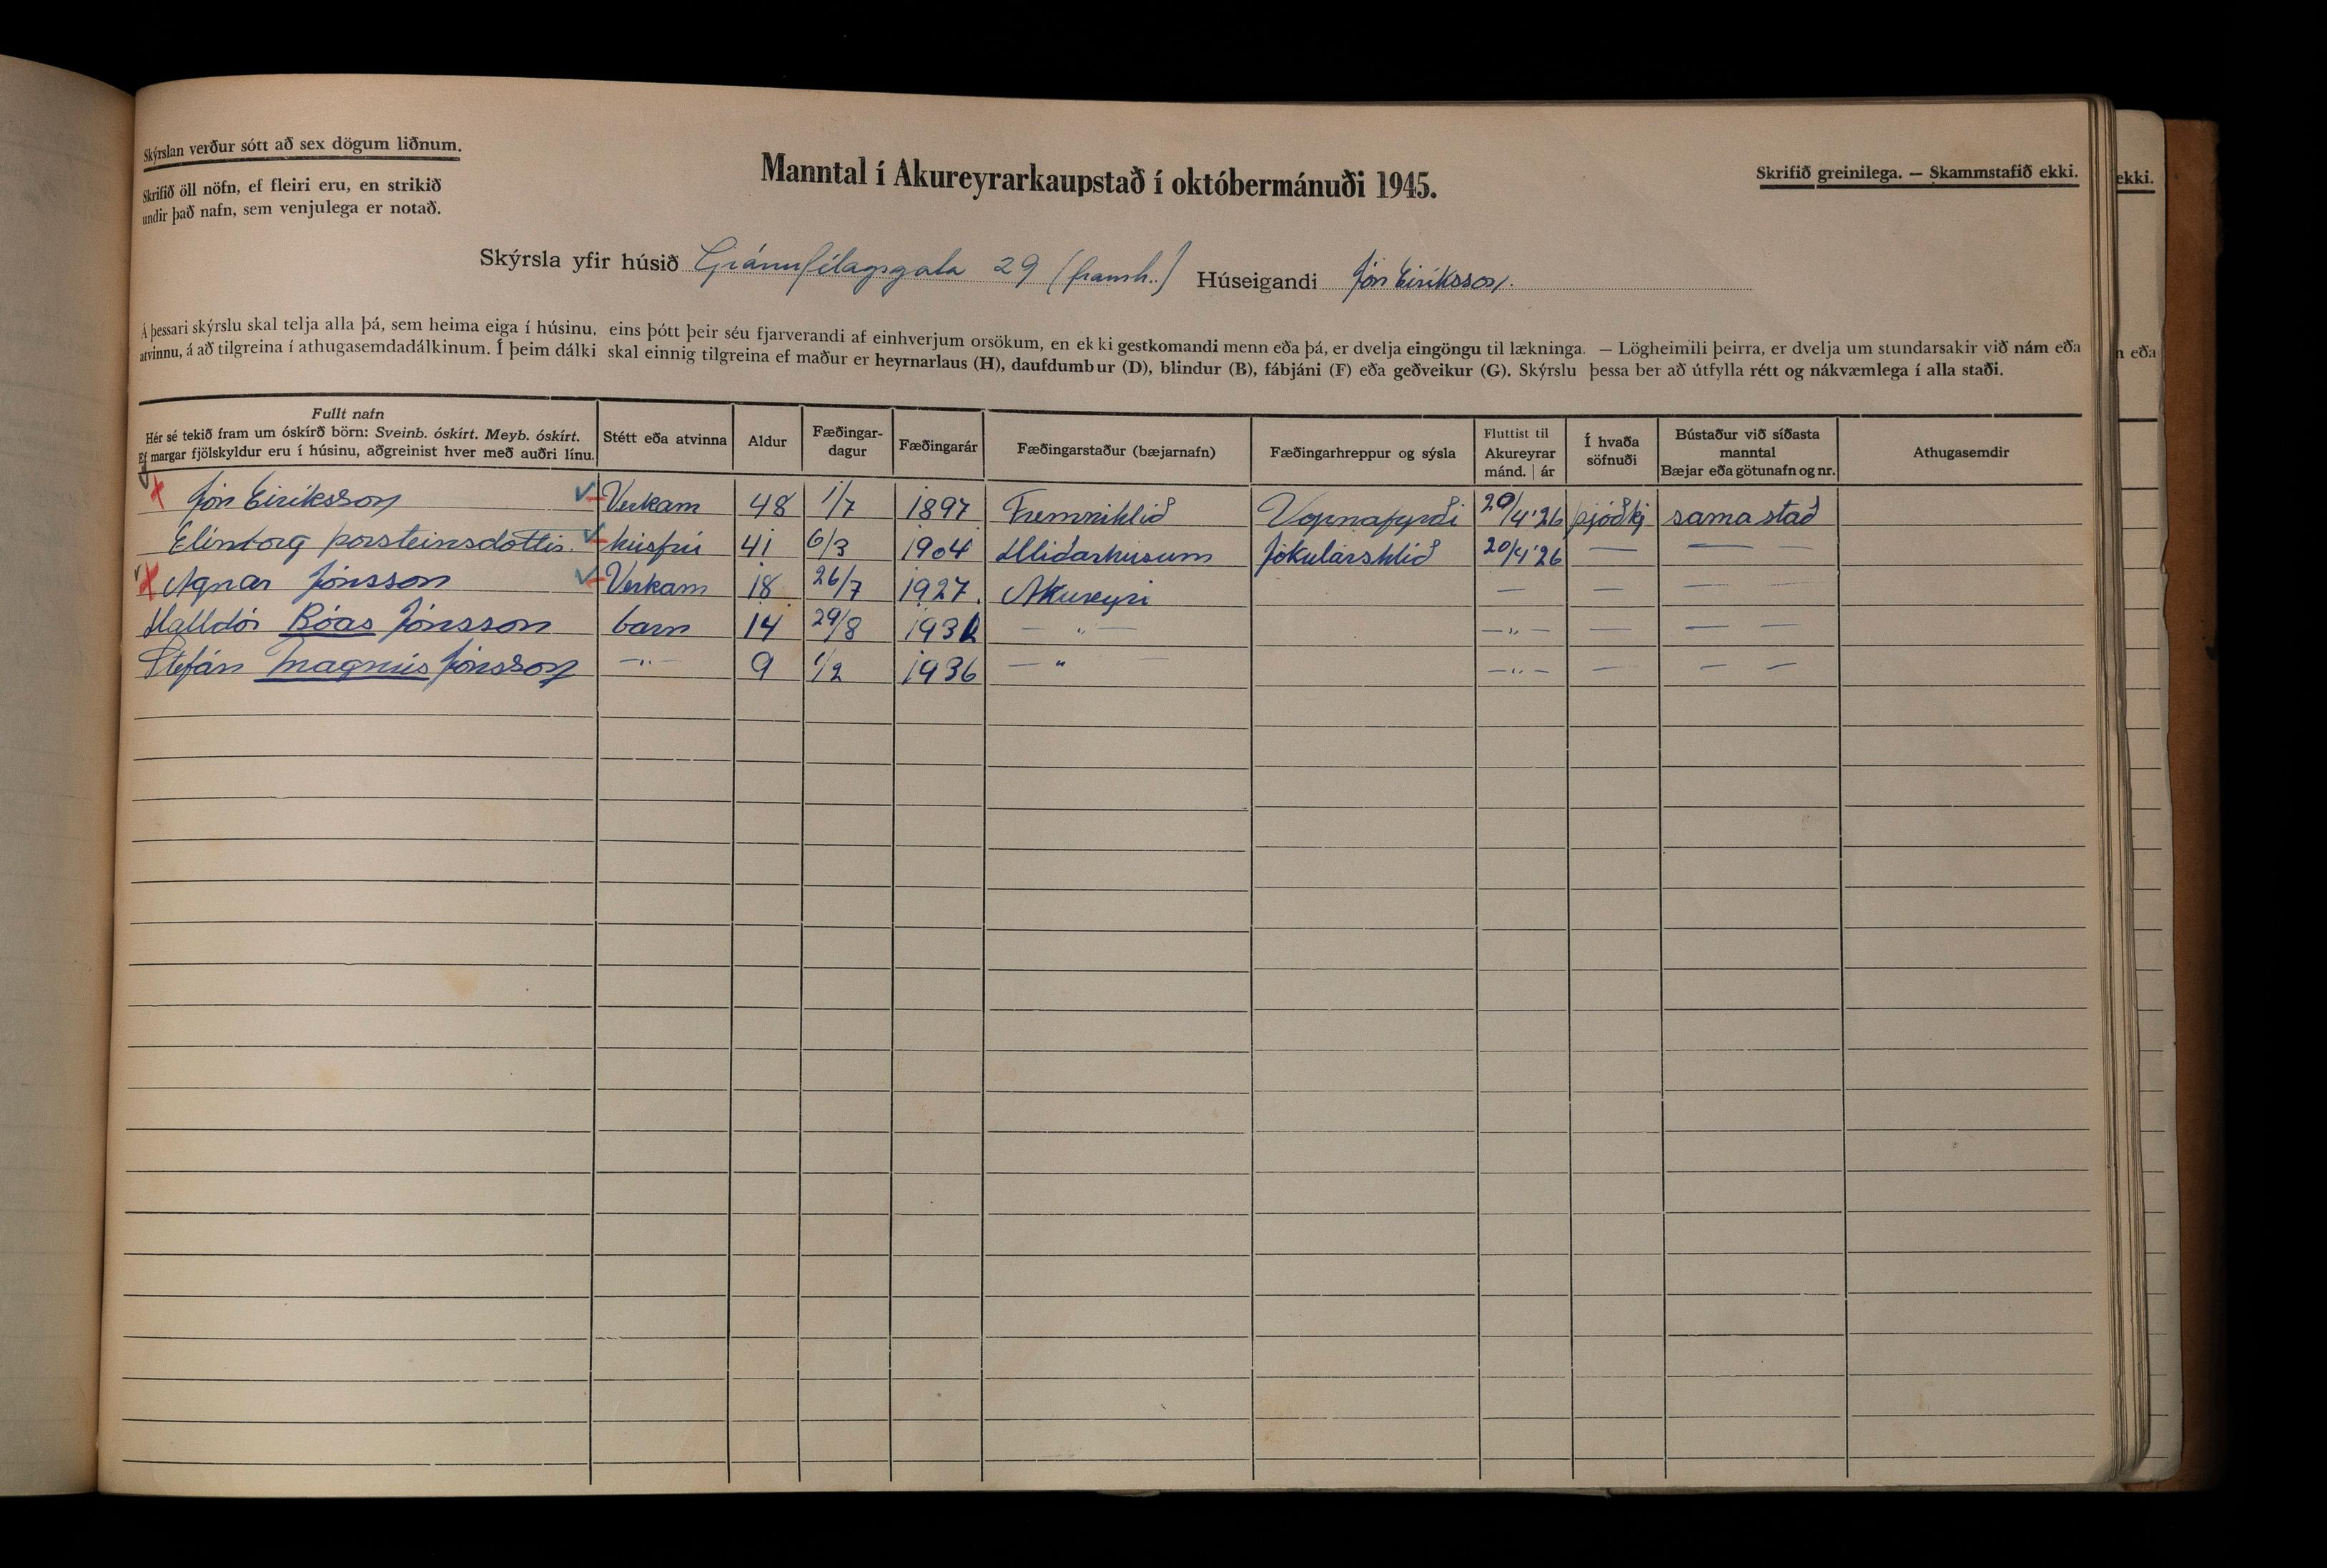 Skýrslan verður sótt að sex dögum liðnum.
Skrifið öll nöfn, ef fleiri eru, en strikið
undir það nafn, sem venjulega er notað.
Manntal í Akureyrarkaupstað í októbermánuði 1945.
Skrifið greinilega. — Skammstafið ekki.
ekki.
Skýrsla yfir húsið Gránufélagsgata 29 (framh.) Húseigandi Jón Eiríksson.
Á þessari skýrslu skal telja alla þá, sem heima eiga í húsinu, eins þótt þeir séu fjarverandi af einhverjum orsökum, en ekki gestkomandi menn eða þá, er dvelja eingöngu til lækninga. — Lögheimili þeirra, er dvelja um stundarsakir við nám eða
atvinnu, á að tilgreina í athugasemdadálkinum. Í þeim dálki skal einnig tilgreina ef maður er heyrnarlaus (H), daufdumbur (D), blindur (B), fábjáni (F) eða geðveikur (G). Skýrslu þessa ber að útfylla rétt og nákvæmlega í alla staði.
n eða
Fullt nafn
Hér sé tekið fram um óskírð börn: Sveinb. óskírt. Meyb. óskírt.
Ef margar fjölskyldur eru í húsinu, aðgreinist hver með auðri línu.
Stétt eða atvinna
Aldur
Fæðingar-
dagur
Fæðingarár
Fæðingarstaður (bæjarnafn)
Fæðingarhreppur og sýsla
Fluttist til
Akureyrar
mánd. | ár
Í hvaða
söfnuði
Bústaður við síðasta
manntal
Bæjar eða götunafn og nr.
Athugasemdir
Jón Eiríksson Verkam 48 1/7 1897 Fremrihlíð Vopnafyrði 20/4 '26 þjóðkj sama stað
Elínborg Þorsteinsdóttir. húsfrú 41 6/3 1904 Hlíðarhúsum Jökulárshlíð 20/4 '26 — — —
Agnar Jónsson Verkam 18 26/7 1927. Akureyri — — — —
Halldór Bóas Jónsson barn 14 29/8 1931 — " — — " — — — —
Stefán Magnús Jónsson — " — 9 1/2 1936 — " — — " — — — —